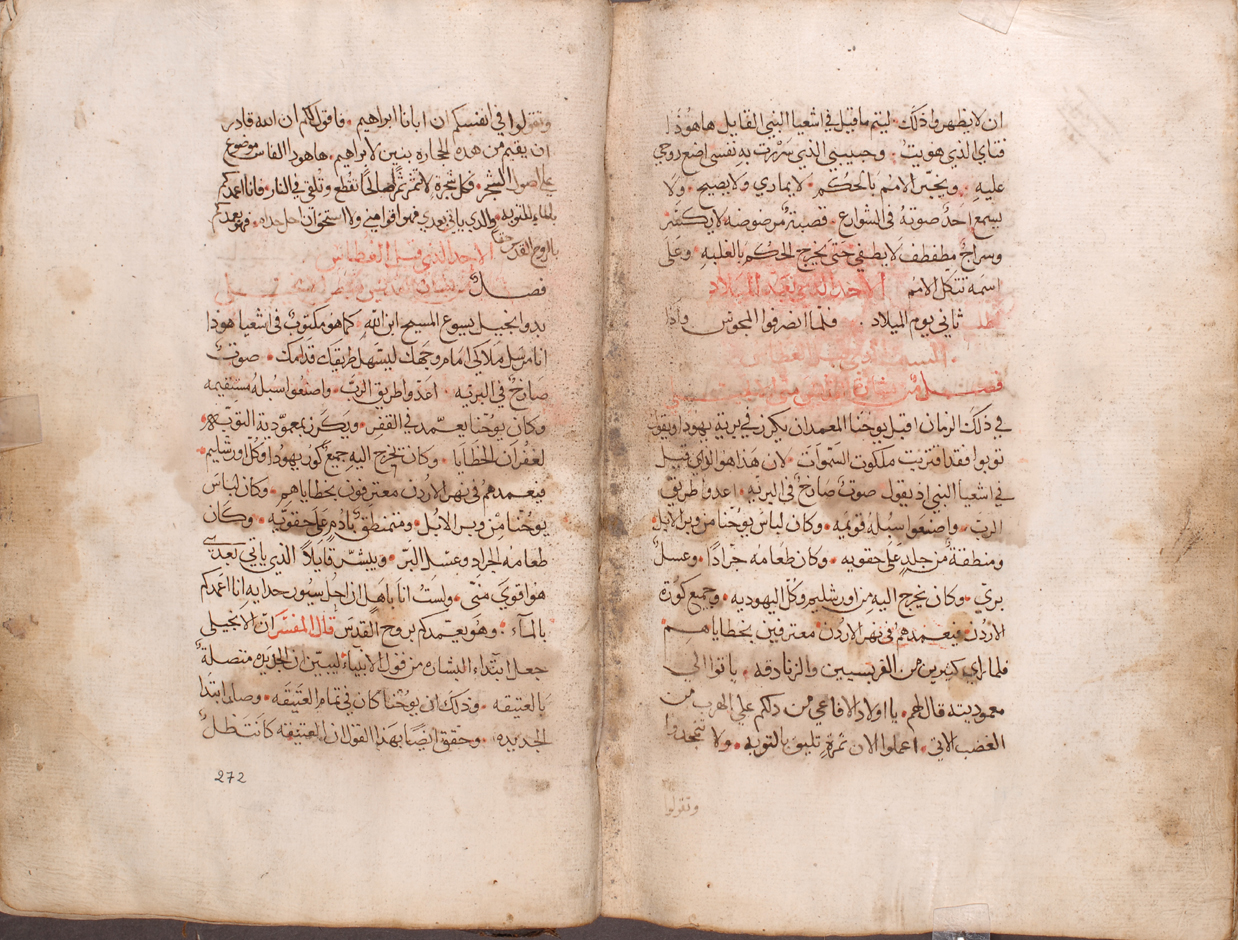 ان لا يظهروا ذلك ليتم ما قيل في اشعيا النبي القايل هاهوذا
فتاي الذي هويت وحبيبي الذي سررت به نفسي اضع روحي
عليه ويخبر الامم بالحكم لا يماري ولا يصيح ولا
يسمع احد صوته في الشوارع قصبة مرضوضه لا يكسر
وسراج مطفطف لا يطفي حتى يخرج الحكم بالغلبه وعلى
اسمه تتكل الامم الاحد الذي بعد الميلاد
ثاني يوم الميلاد فلما انصرفوا المجوس واذا
السبت الذي قبل الغطاس
فصل من بشارة القديس متى
في ذلك الزمان اقبل يوحنا المعمدان يكرز في برية يهودا ويقول
توبوا فقد اقتربت ملكوت السموات لان هذا هو الذي قيل
في اشعيا النبي اذ يقول صوت صارخ في البريه اعدوا طريق
الرب واصنعوا سبله قويمه وكان لباس يوحنا من وبر الابل
ومنطقة من جلد على حقويه وكان طعامه جرادا وعسل
بري وكان يخرج اليه من اورشليم وكل اليهوديه وجميع كورة
الاردن فيعمدهم في نهر الاردن معترفين بخطاياهم
فلما راي كثيرين من الفريسيين والزنادقه ياتوا الى
معموديته قال لهم يا اولاد الافاعي من دلكم علي الهرب من
الغضب الاتي اعملوا الان ثمرة تليق بالتوبه ولا تتجددوا
وتقولوا
وتقولوا في انفسكم ان ابانا ابراهيم فاقول لكم ان الله قادر
ان يقيم من هذه الحجاره بنين لابراهيم هاهوذا الفاس موضوع
على اصول الشجر فكل شجرة لا تثمر ثمرا صالحا تقطع وتلقي في النار فانا اعمدكم
بالماء للتوبه والذي ياتي بعدي فهو اقوا مني ولا استحق ان احل حداه فهو يعمدكم
بالروح القدس حقا الاحد الذي قبل الغطاس
فصل من بشارة القديس
بدو انجيل يسوع المسيح ابن الله كما هو مكتوب في اشعيا هوذا
انا مرسل ملاكي امام وجهك ليسهل طريقك قدامك صوت
صارخ في البريه اعدوا طريق الرب واصنعوا سبله مستقيمه
وكان يوحنا يعمد في القفر ويكرز بمعمودية التوبه
لغفران الخطايا وكان تخرج اليه جميع كور يهودا وكل اورشليم
فيعمدهم في نهر الاردن معترفون بخطاياهم وكان لباس
يوحنا من وبر الابل ومتمنطق بادم على حقويه وكان
طعامه الجراد وعسل البر ويبشر قايلا الذي ياتي بعدي
هو اقوي مني ولست انا باهل ان احل سيور حدايه انا اعمدكم
بالماء وهو يعمدكم بروح القدس قال المفسر ان الانجيلي
جعل ابتداء البشاره من قول الانبياء ليبين ان الجديده متصلة
بالعتيقه وذلك ان يوحنا كان في تمام العتيقه وصلما ابتدا
الجديده وحقق ايضا بهذا القول ان العتيقه كانت ظل
272